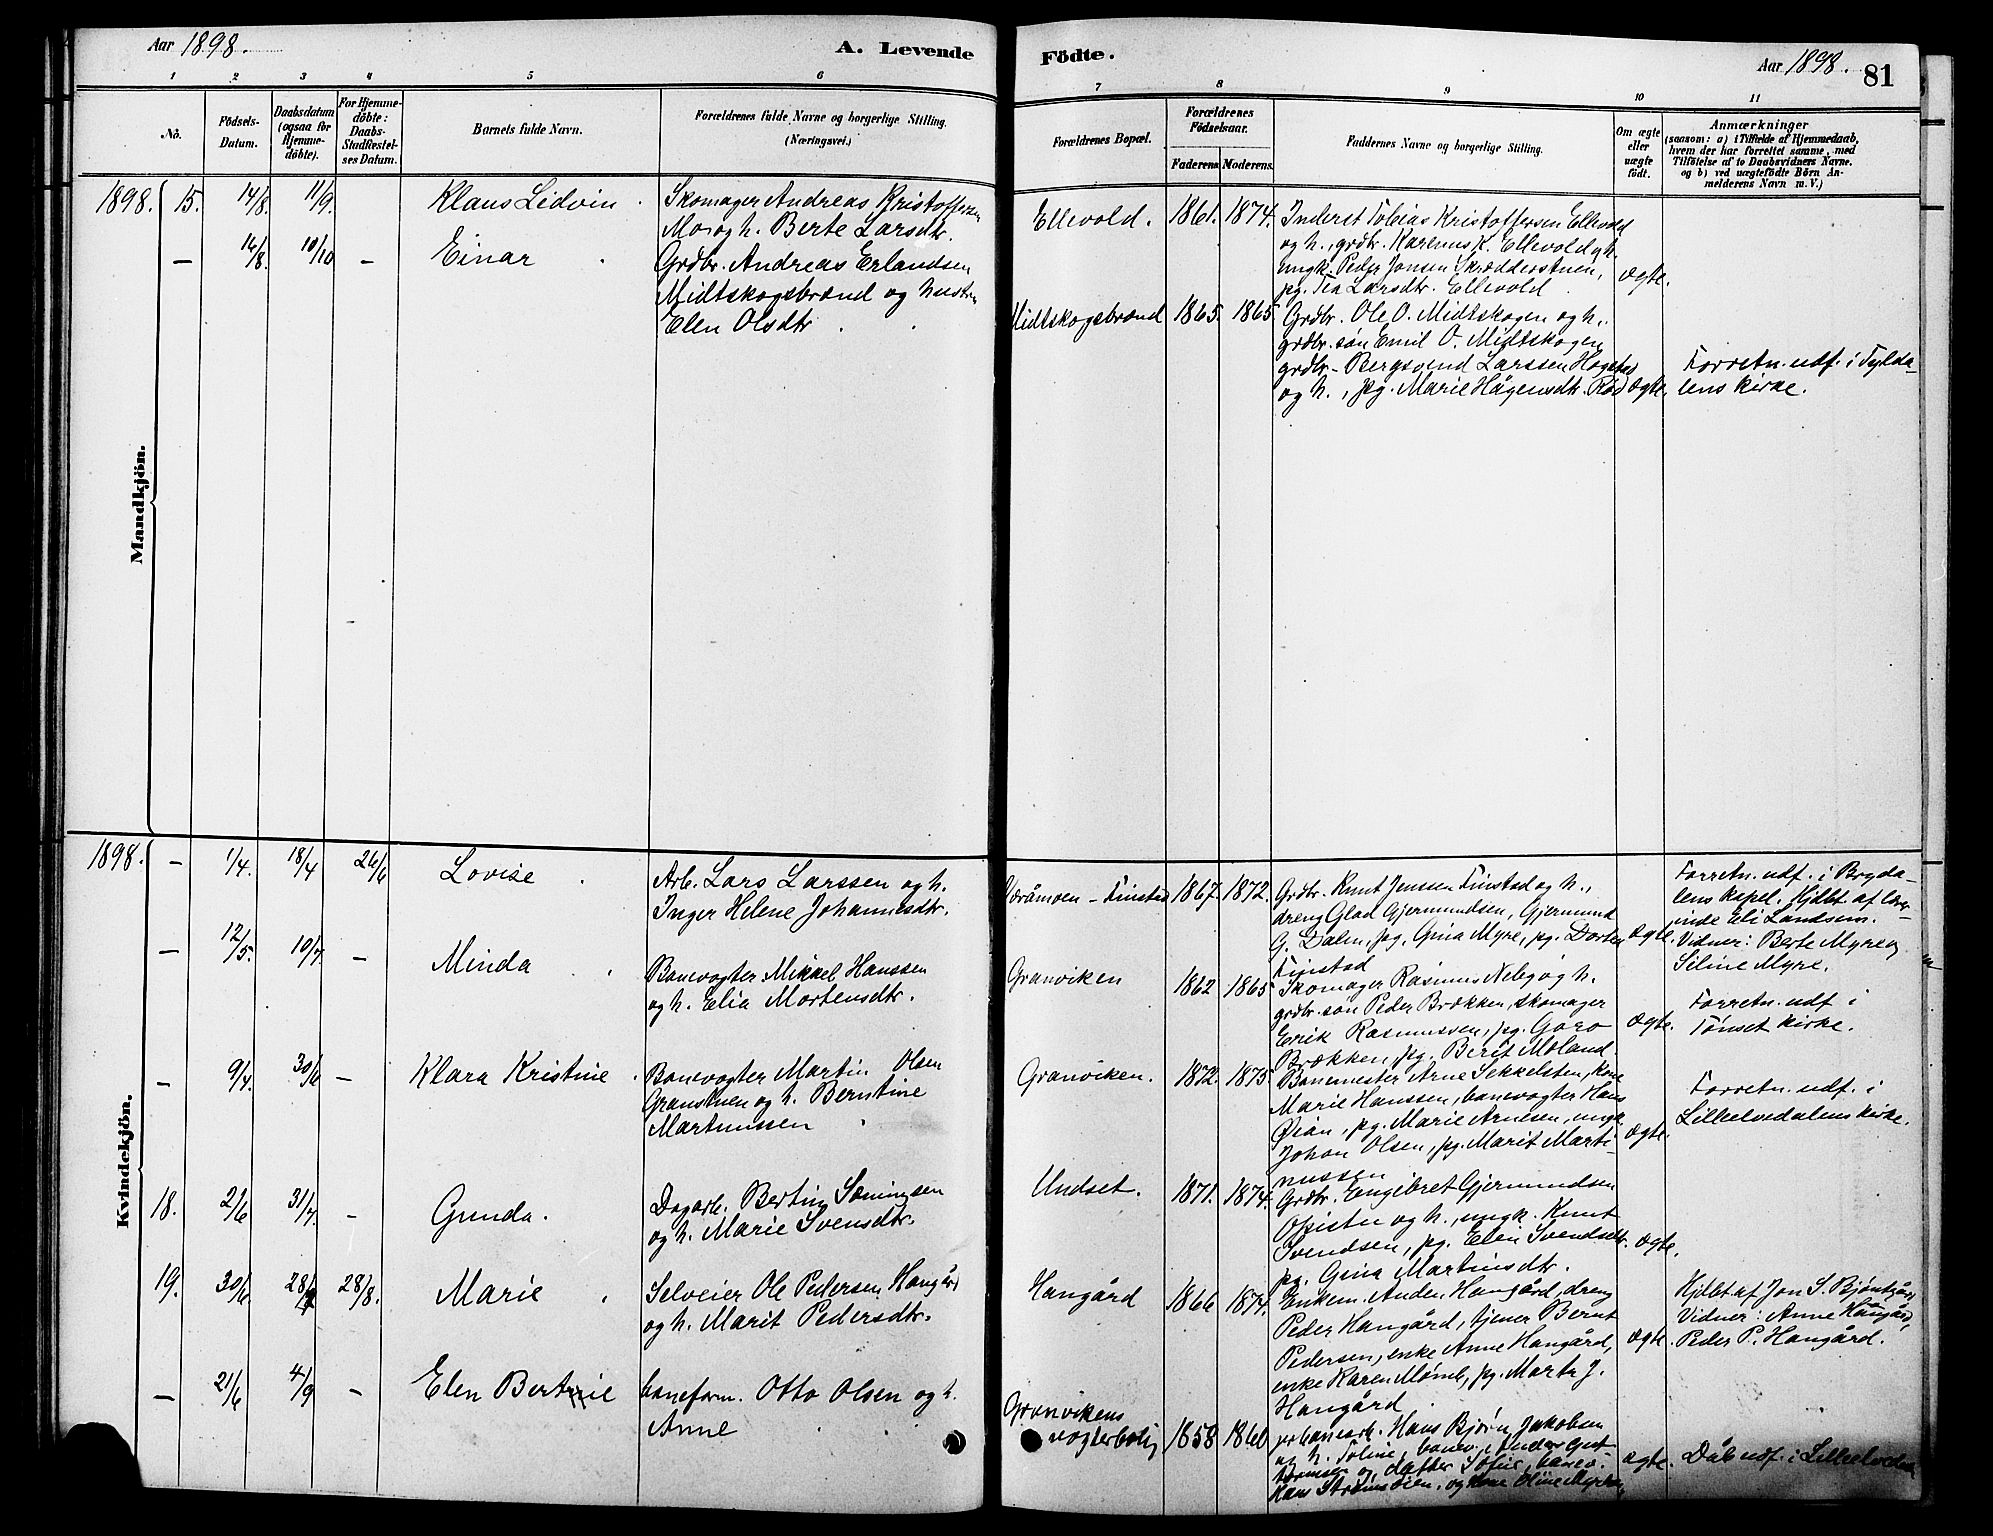 Aar 1898.
A. Levende
Födte.
Aar 1898.
81
1 2 3 4 5 6 7 8 9 10 11
No.
Födsels-Datum.
Daabsdatum (ogsaa for Hjemme-döbte).
For Hjemme-döbte: Daabs-Stadfæstel-ses Datum.
Barnets fulde Navn.
Forældrenes fulde Navne og borgerlige Stilling. (Næringsvei.)
Forældrenes Bopæl.
Forældrenes Födselsaar.
Faderens.
Moderens.
Faddernes Navne og borgerlige Stilling.
Om ægte eller uægte födt.
Anmærkninger
(saasom: a) i Tilfælde af Hjemmedaab,
hvem der har forrettet samme, med
Tilföielse af to Daabsvidners Navne.
og b) ved uægtefödte Börn An-
melderens Navn m. V.)
Mandkjön.
1898. 15. 14/8. 11/9. Klaus Lidvin
Skomager Andreas Kristoffersen
Moe og h. Berte Larsdtr.
Ellevold. 1861. 1874.
Inderst Tobias Kristoffersen Ellevold
og h., grdbr. Karenus K. Ellevold og h.
ungk. Peder Jonsen Skrædderstuen,
pg. Tea Larsdtr. Ellevold
ægte.
— 16/8. 10/10 — Einar
Grdbr. Andreas Erlandsen
Midtskogsbrænd og hustru
Elen Olsdtr
Midtskogsbrænd 1865. 1865
Grdbr. Ole O. Midtskogen og h.
grdbr. søn Emil O. Midtskogen
grdbr. Bergsvend Larssen Hogstad
og h., pg. Marie Hågensdtr. Rød
ægte.
Forretn. udf. i Tylda-
lens kirke.
Kvindekjön.
1898. — 1/4. 18/4 26/6 Lovise
Arb. Lars Larssen og h.
Inger Helene Johannesdtr.
Finstad 1867. 1872.
Grdbr. Knut Jenssen Finstad og h.,
dreng Glad Gjermundsen, Gjermund
G. Dalen, pg. Gina Myre, pg. Dortea
Finstad
ægte.
Forretn. udf. i Bryda-
lens kapel. Hjdbt. af
Eli Landsem.
Vidner: Berte Myre og
Seline Myre.
— 12/5. 10/7 — Minda
Banevogter Mikkel Hanssen
og h. Elia Mortensdtr.
Granviken 1862 1865
Skomager Rasmus Neby og h.
grdbr. søn Peder Brækken, skomager
Erik Rasmussen, pg. Goro
Brækken, pg. Berit Moland.
ægte.
Forretn. udf i
Tönset kirke.
— 9/4. 30/6 — Klara Kristine
Banevogter Martin Olsen
Granstuen og h. Berntine
Martinussen
Granviken. 1872. 1875.
Banemester Arne Sekkelsten, kone
Marie Hanssen, banevogter Hans
Øian, pg. Marie Arnesen, ungk.
Johan Olsen, pg. Marit Marti-
nussen
ægte.
Forretn. udf. i
Lilleelvedalens kirke.
18. 2/6 31/7. — Gunda.
Dagarb. Bertin Sæmingsen
og h. Marie Svensdtr.
Undset. 1871. 1874.
Grdbr. Engebret Gjermundsen
og h., ungk. Knut
Svendsen, pg. Elin Svendsdtr.
pg. Gina Martinsdtr.
ægte.
19. 30/6 28/7 28/8. Marie
Selveier Ole Pedersen Hangård
og h. Marit Pedersdtr.
Hangård 1866 1874.
Enkem. Anders Hangård, dreng
Peder Hangård, tjener Bernt
Pedersen, enke Anne Hangård,
enke Karen Moml, pg. Marta J.
Hangård
ægte.
Hjdbt af Jon S. Bjöntgård,
Vidner: Anne Hangård,
Peder P. Hangård.
— 21/6 4/9 — Elen Bertine
baneform. Otto Olsen og h.
Anne
Granvikens
vogterbolig 1858 1860
jerbanearb. Hans Bjørn Jakobsen
og h. Toline, banev. Anders Gut-
tormsen og datter Sofie, banev.
Hans Strømsøien, og kone Oline Myren
ægte.
Dåb udf. i Lilleelvedalen